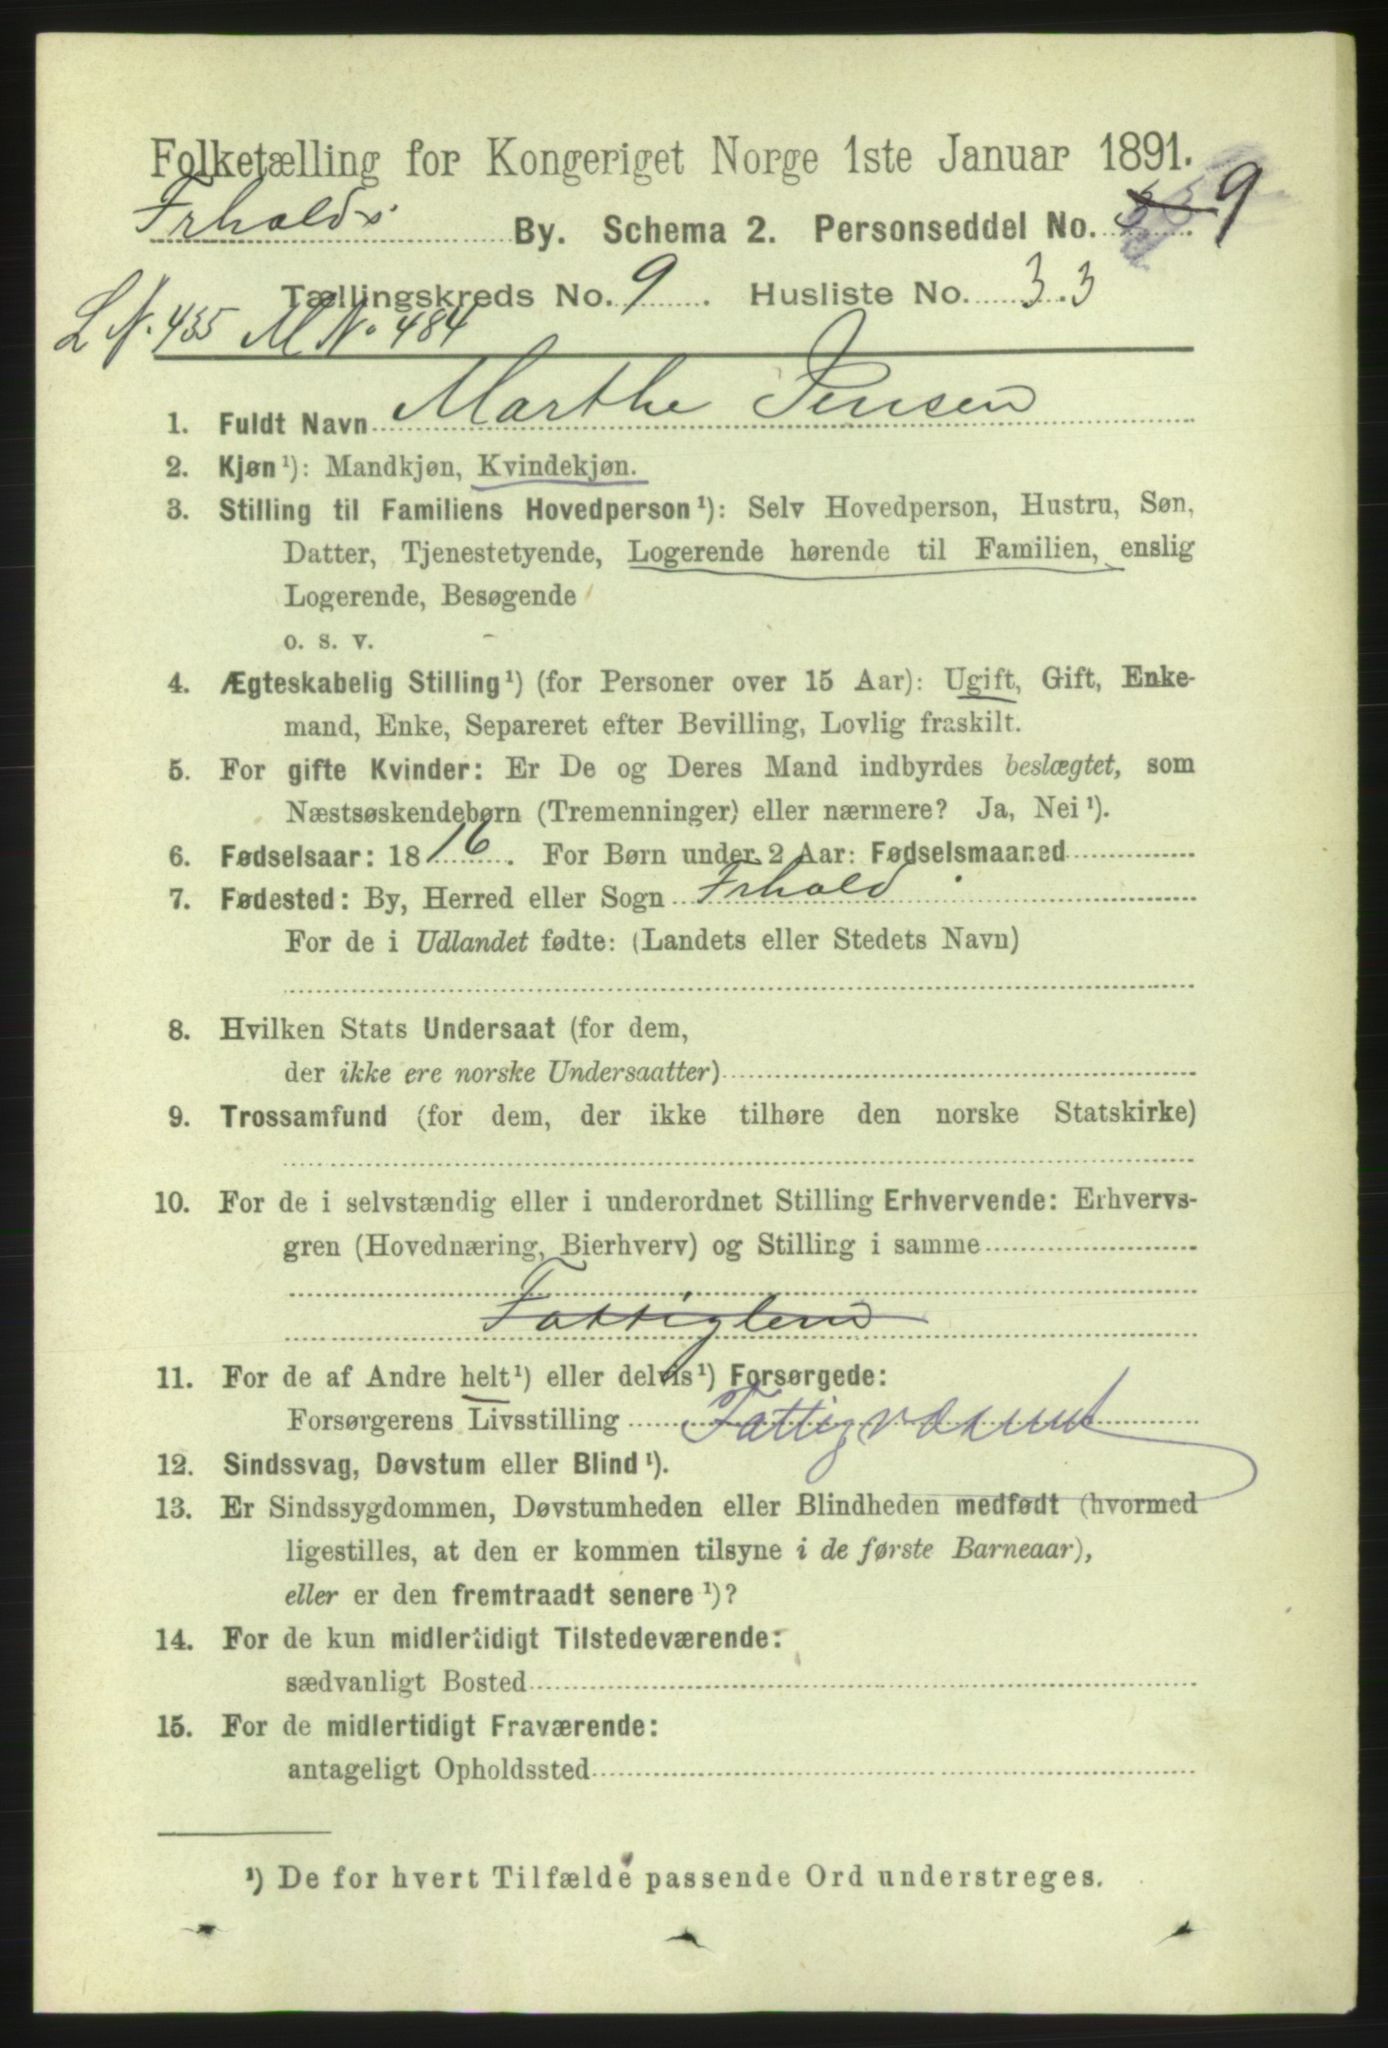 Folketælling for Kongeriget Norge 1ste Januar 1891.
Frhalds By. Schema 2. Personseddel No. 9
Tællingskreds No. 9. Husliste No. 33
L N. 435 M No 484
1. Fuldt Navn Marthe Jensen
2. Kjøn¹): Mandkjøn, Kvindekjøn.
3. Stilling til Familiens Hovedperson¹): Selv Hovedperson, Hustru, Søn,
Datter, Tjenestetyende, Logerende hørende til Familien, enslig
Logerende, Besøgende
o. s. v.
4. Ægteskabelig Stilling¹) (for Personer over 15 Aar): Ugift, Gift, Enke-
mand, Enke, Separeret efter Bevilling, Lovlig fraskilt.
5. For gifte Kvinder: Er De og Deres Mand indbyrdes beslægtet, som
Næstsøskendebørn (Tremenninger) eller nærmere? Ja, Nei¹).
6. Fødselsaar: 1816. For Børn under 2 Aar: Fødselsmaaned
7. Fødested: By, Herred eller Sogn Frhald.
For de i Udlandet fødte: (Landets eller Stedets Navn)
8. Hvilken Stats Undersaat (for dem,
der ikke ere norske Undersaatter)
9. Trossamfund (for dem, der ikke tilhøre den norske Statskirke)
10. For de i selvstændig eller i underordnet Stilling Erhvervende: Erhvervs-
gren (Hovednæring, Bierhverv) og Stilling i samme
Fattiglem
11. For de af Andre helt¹) eller delvis¹) Forsørgede:
Forsørgerens Livsstilling Fattigvæsenet
12. Sindssvag, Døvstum eller Blind¹).
13. Er Sindssygdommen, Døvstumheden eller Blindheden medfødt (hvormed
ligestilles, at den er kommen tilsyne i de første Barneaar),
eller er den fremtraadt senere¹)?
14. For de kun midlertidigt Tilstedeværende:
sædvanligt Bosted
15. For de midlertidigt Fraværende:
antageligt Opholdssted
¹) De for hvert Tilfælde passende Ord understreges.